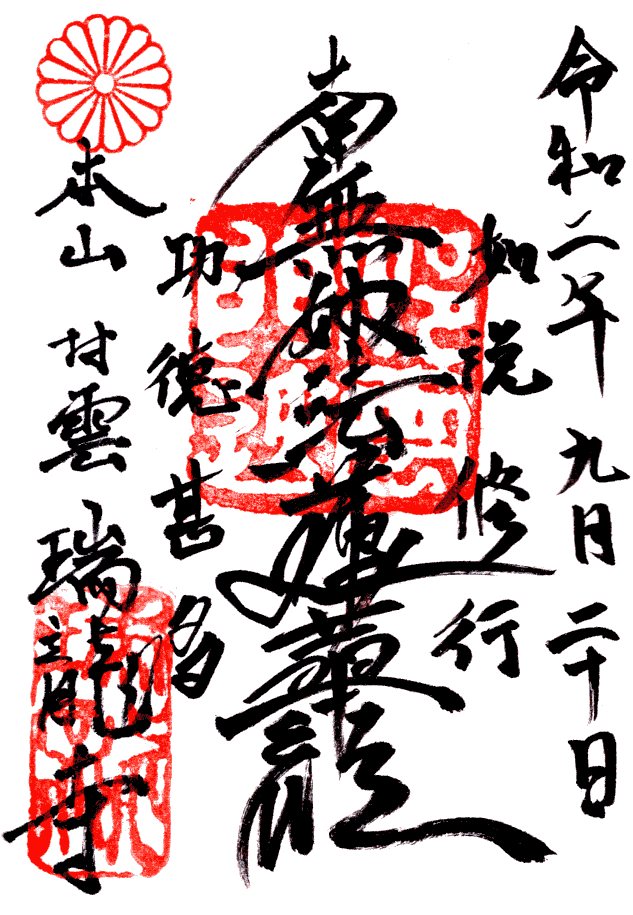 令和二年 九月 二十日
如説修行
南無妙法蓮華経
功徳甚多
本山 村雲 瑞龍寺